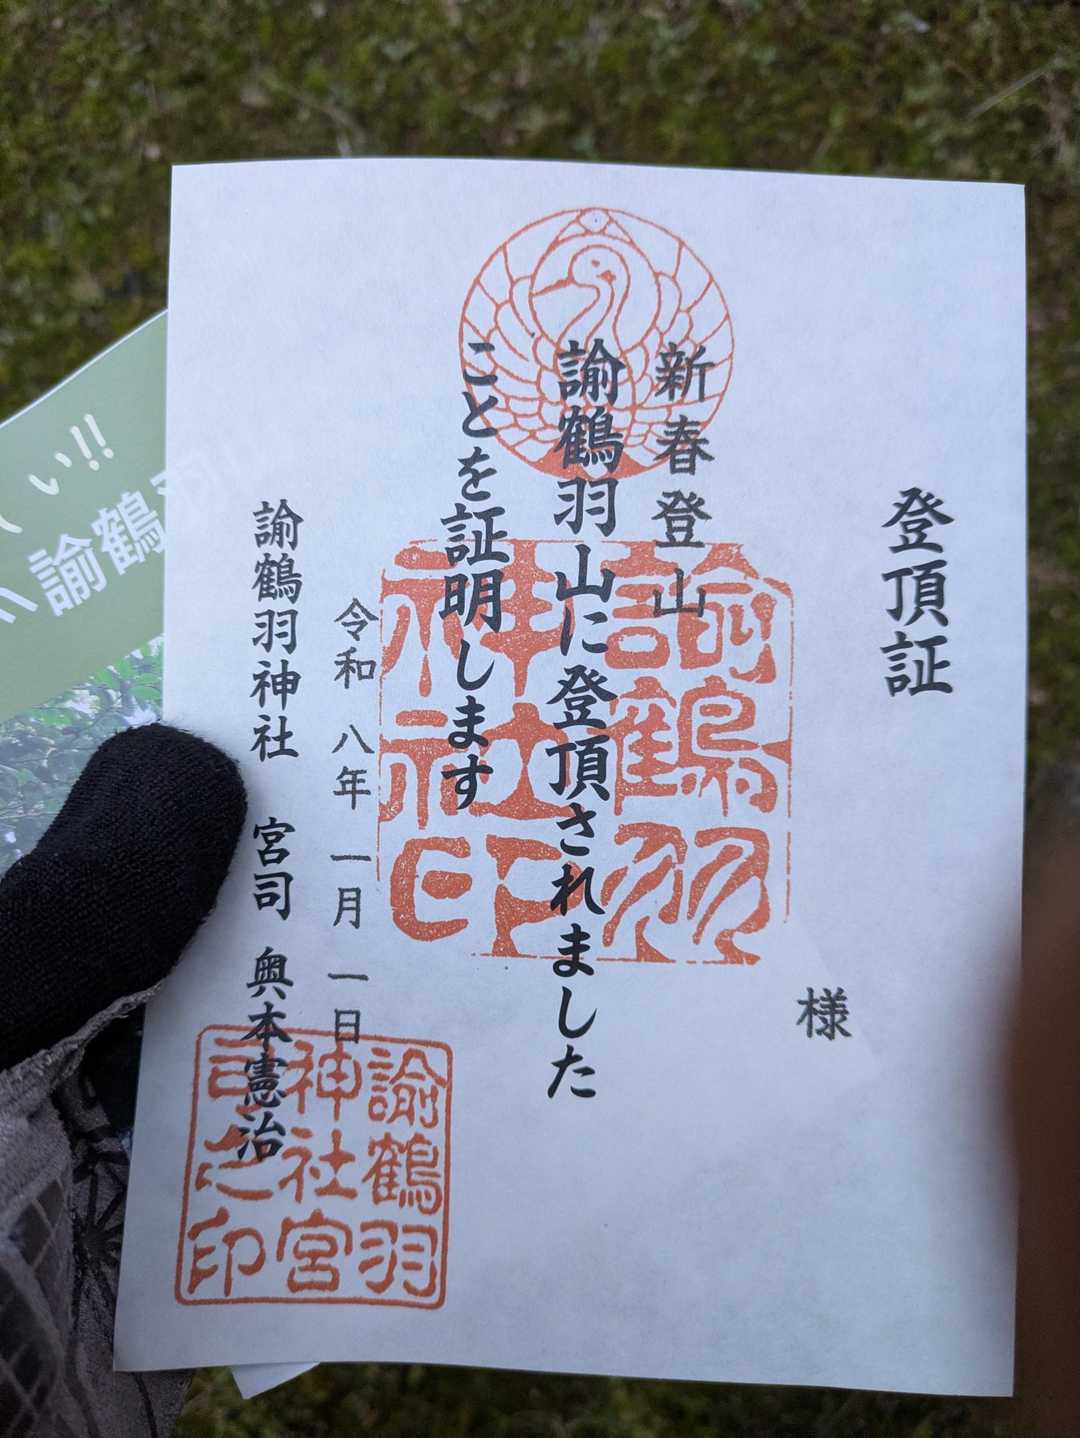 登頂証
様
新春登山
諭鶴羽山に登頂されました
ことを証明します
令和 八年 一月 一日
諭鶴羽神社 宮司 奥本憲治
諭鶴羽
神社印
諭鶴羽
神社宮
司之印
い!!
諭鶴羽